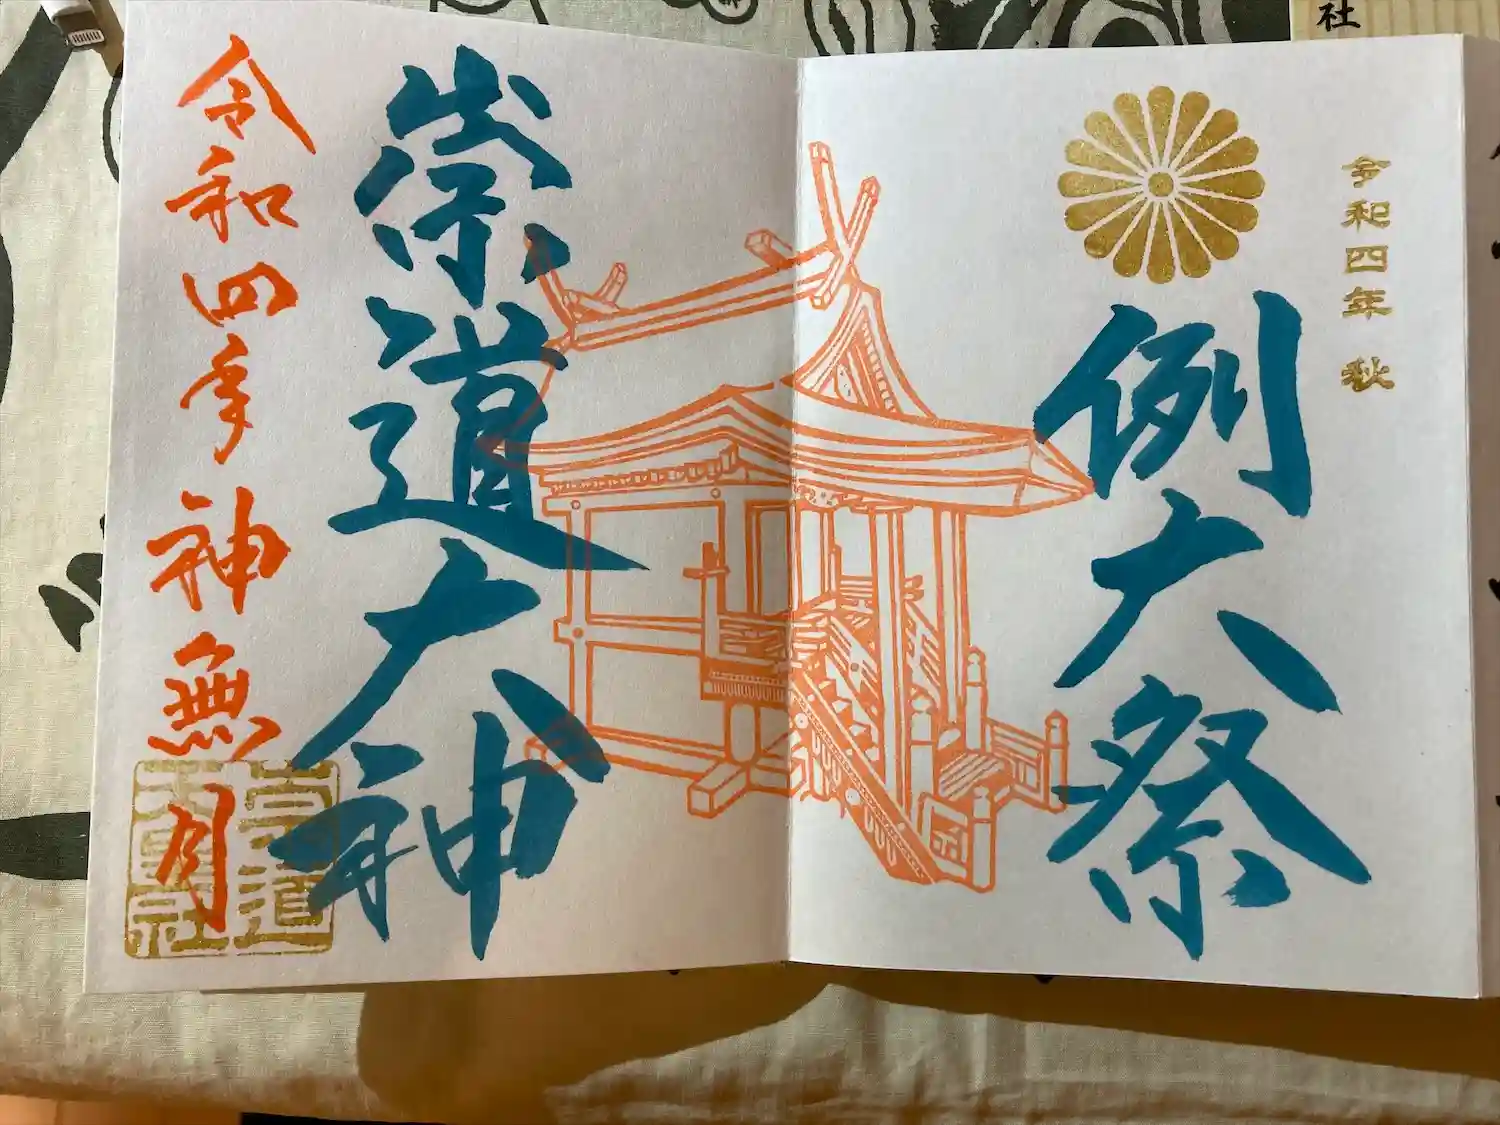 社
令和四年 秋
例大祭
崇道大神
令和四年 神無月
崇道
天皇社